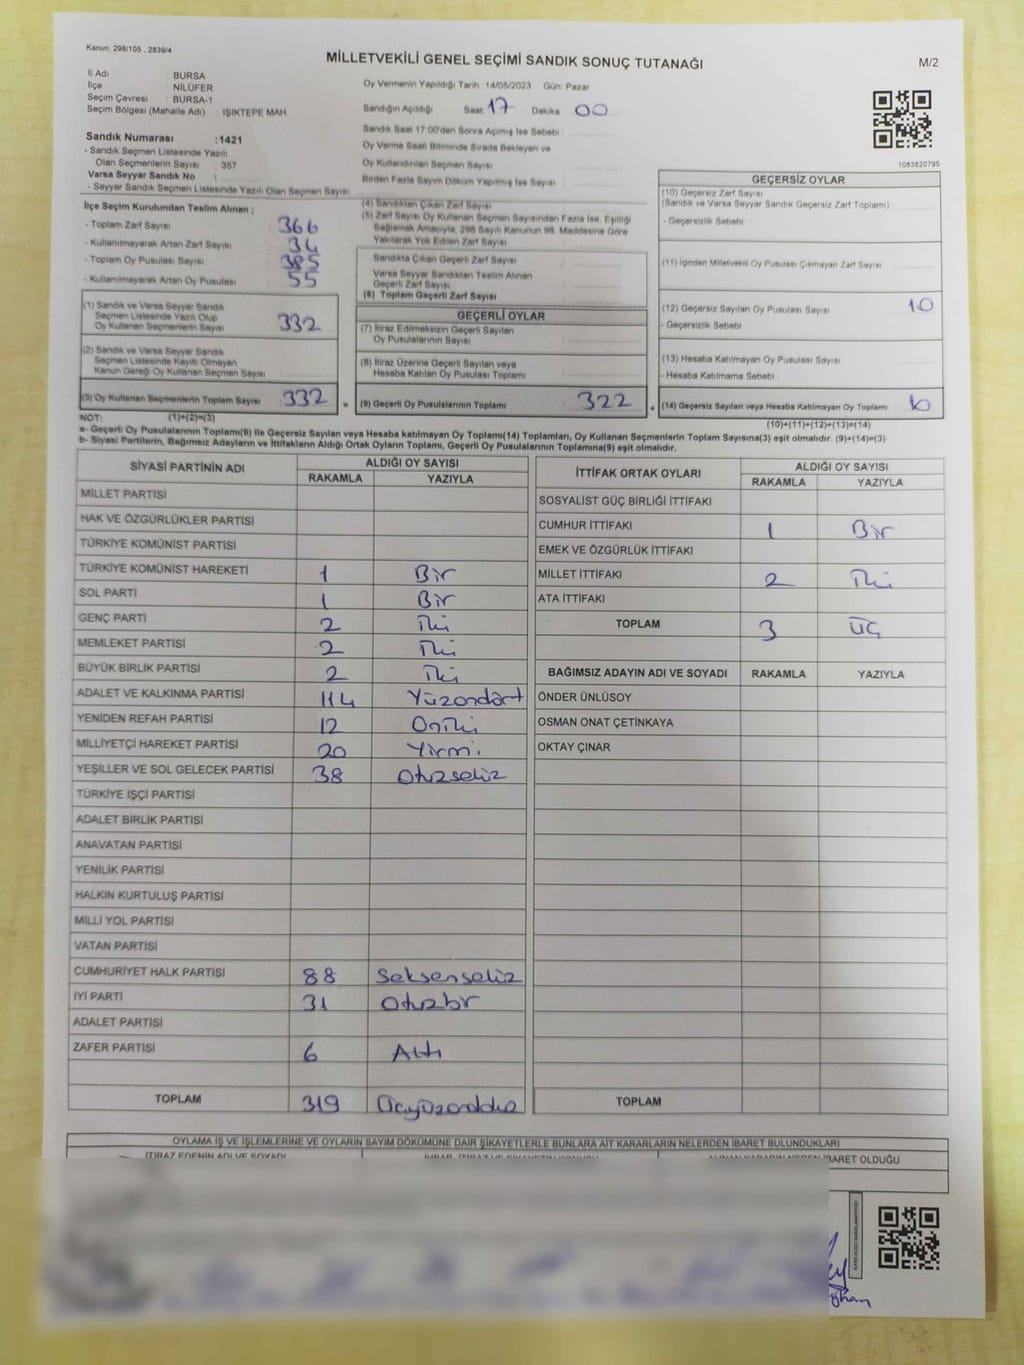 Kanun: 298/105 , 2839/4
MİLLETVEKİLİ GENEL SEÇİMİ SANDIK SONUÇ TUTANAĞI
M/2
İl Adı : BURSA
İlçe : NİLÜFER
Seçim Çevresi : BURSA-1
Seçim Bölgesi (Mahalle Adı) : IŞIKTEPE MAH
Sandık Numarası :1421
- Sandık Seçmen Listesinde Yazılı
Olan Seçmenlerin Sayısı : 357
Varsa Seyyar Sandık No :
- Seyyar Sandık Seçmen Listesinde Yazılı Olan Seçmen Sayısı:
Oy Vermenin Yapıldığı Tarih :14/05/2023 Gün: Pazar
Sandığın Açıldığı Saat 17 Dakika 00
Sandık Saat 17:00'den Sonra Açılmış İse Sebebi
Oy Verme Saati Bitiminde Sırada Bekleyen ve
Oy Kullandırılan Seçmen Sayısı
Birden Fazla Sayım Döküm Yapılmış İse Sayısı
1083820795
İlçe Seçim Kurulundan Teslim Alınan ;
- Toplam Zarf Sayısı : 366
- Kullanılmayarak Artan Zarf Sayısı : 34
- Toplam Oy Pusulası Sayısı : 385
- Kullanılmayarak Artan Oy Pusulası : 55
(1) Sandık ve Varsa Seyyar Sandık
Seçmen Listesinde Yazılı Olup
Oy Kullanan Seçmenlerin Sayısı : 332
(2) Sandık ve Varsa Seyyar Sandık
Seçmen Listesinde Kayıtlı Olmayan
Kanun Gereği Oy Kullanan Seçmen Sayısı :
(3) Oy Kullanan Seçmenlerin Toplam Sayısı : 332 =
(4) Sandıktan Çıkan Zarf Sayısı
(5) Zarf Sayısı Oy Kullanan Seçmen Sayısından Fazla İse, Eşitliği
Sağlamak Amacıyla, 298 Sayılı Kanunun 98. Maddesine Göre
Yakılarak Yok Edilen Zarf Sayısı
Sandıkta Çıkan Geçerli Zarf Sayısı :
Varsa Seyyar Sandıktan Teslim Alınan
Geçerli Zarf Sayısı :
(6) Toplam Geçerli Zarf Sayısı
GEÇERLİ OYLAR
(7) İtiraz Edilmeksizin Geçerli Sayılan
Oy Pusulalarının Sayısı :
(8) İtiraz Üzerine Geçerli Sayılan veya
Hesaba Katılan Oy Pusulası Toplamı :
(9) Geçerli Oy Pusulalarının Toplamı : 322 +
GEÇERSİZ OYLAR
(10) Geçersiz Zarf Sayısı
(Sandık ve Varsa Seyyar Sandık Geçersiz Zarf Toplamı)
- Geçersizlik Sebebi
(11) İçinden Milletvekili Oy Pusulası Çıkmayan Zarf Sayısı
(12) Geçersiz Sayılan Oy Pusulası Sayısı 10
- Geçersizlik Sebebi
(13) Hesaba Katılmayan Oy Pusulası Sayısı
- Hesaba Katılmama Sebebi
(14) Geçersiz Sayılan veya Hesaba Katılmayan Oy Toplamı 10
NOT: (1)+(2)=(3)
(10)+(11)+(12)+(13)=(14)
a- Geçerli Oy Pusulalarının Toplamı(9) ile Geçersiz Sayılan veya Hesaba Katılmayan Oy Toplamı(14) Toplamları, Oy Kullanan Seçmenlerin Toplam Sayısına(3) eşit olmalıdır. (9)+(14)=(3)
b- Siyasi Partilerin, Bağımsız Adayların ve İttifakların Aldığı Ortak Oyların Toplamı, Geçerli Oy Pusulalarının Toplamına(9) eşit olmalıdır.
SİYASİ PARTİNİN ADI ALDIĞI OY SAYISI
RAKAMLA YAZIYLA
MİLLET PARTİSİ
HAK VE ÖZGÜRLÜKLER PARTİSİ
TÜRKİYE KOMÜNİST PARTİSİ
TÜRKİYE KOMÜNİST HAREKETİ 1 Bir
SOL PARTİ 1 Bir
GENÇ PARTİ 2 İki
MEMLEKET PARTİSİ 2 İki
BÜYÜK BİRLİK PARTİSİ 2 İki
ADALET VE KALKINMA PARTİSİ 114 Yüzondört
YENİDEN REFAH PARTİSİ 12 Oniki
MİLLİYETÇİ HAREKET PARTİSİ 20 Yirmi
YEŞİLLER VE SOL GELECEK PARTİSİ 38 Otuzsekiz
TÜRKİYE İŞÇİ PARTİSİ
ADALET BİRLİK PARTİSİ
ANAVATAN PARTİSİ
YENİLİK PARTİSİ
HALKIN KURTULUŞ PARTİSİ
MİLLİ YOL PARTİSİ
VATAN PARTİSİ
CUMHURİYET HALK PARTİSİ 88 Seksensekiz
İYİ PARTİ 31 Otuzbir
ADALET PARTİSİ
ZAFER PARTİSİ 6 Altı
TOPLAM 319 Üçyüzondokuz
İTTİFAK ORTAK OYLARI ALDIĞI OY SAYISI
RAKAMLA YAZIYLA
SOSYALİST GÜÇ BİRLİĞİ İTTİFAKI
CUMHUR İTTİFAKI 1 Bir
EMEK VE ÖZGÜRLÜK İTTİFAKI
MİLLET İTTİFAKI 2 İki
ATA İTTİFAKI
TOPLAM 3 ÜÇ
BAĞIMSIZ ADAYIN ADI VE SOYADI RAKAMLA YAZIYLA
ÖNDER ÜNLÜSOY
OSMAN ONAT ÇETİNKAYA
OKTAY ÇINAR
TOPLAM
OYLAMA İŞ VE İŞLEMLERİNE VE OYLARIN SAYIM DÖKÜMÜNE DAİR ŞİKAYETLERLE BUNLARA AİT KARARLARIN NELERDEN İBARET BULUNDUKLARI
İTİRAZ EDENİN ADI VE SOYADI